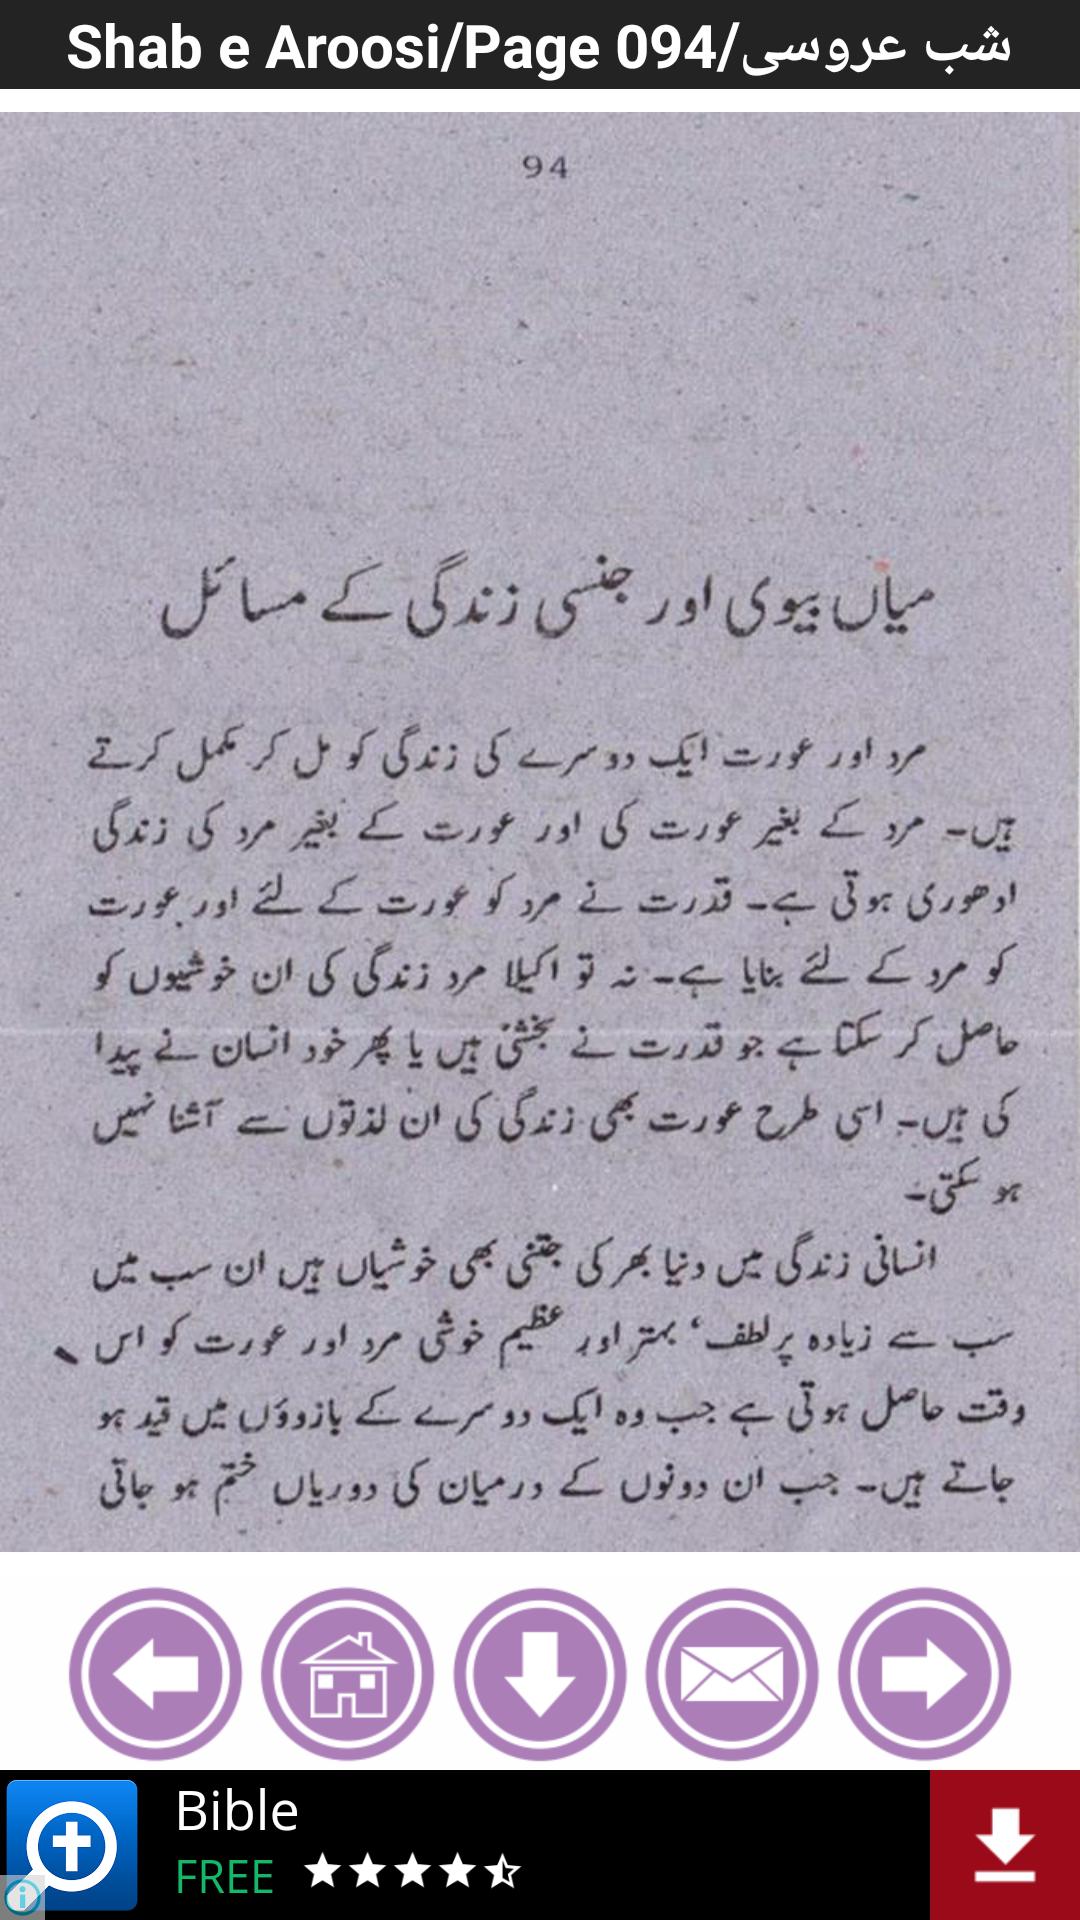 Shab e Aroosi/Page 094/شب عروسی
94
میاں بیوی اور جنسی زندگی کے مسائل
مرد اور عورت ایک دوسرے کی زندگی کو مل کر مکمل کرتے
ہیں۔ مرد کے بغیر عورت کی اور عورت کے بغیر مرد کی زندگی
ادھوری ہوتی ہے۔ قدرت نے مرد کو عورت کے لئے اور عورت
کو مرد کے لئے بنایا ہے۔ نہ تو اکیلا مرد زندگی کی ان خوشیوں کو
حاصل کر سکتا ہے جو قدرت نے بخشی ہیں یا پھر خود انسان نے پیدا
کی ہیں۔ اسی طرح عورت بھی زندگی کی ان لذتوں سے آشنا نہیں
ہو سکتی۔
انسانی زندگی میں دنیا بھر کی جتنی بھی خوشیاں ہیں ان سب میں
سب سے زیادہ پرلطف، بہتر اور عظیم خوشی مرد اور عورت کو اس
وقت حاصل ہوتی ہے جب وہ ایک دوسرے کے بازوؤں میں قید ہو
جاتے ہیں۔ جب ان دونوں کے درمیان کی دوریاں ختم ہو جاتی
Bible
FREE